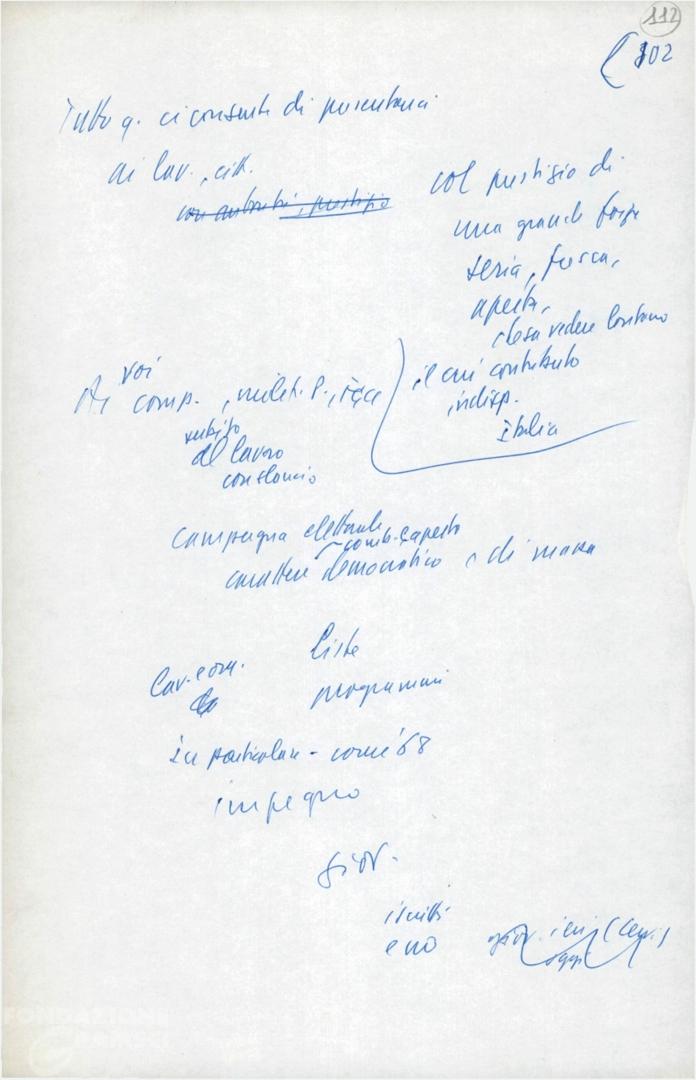 112
102
Tutto q. ci consente di presentarci
ai lav., citt.
con autorità, prestigio
col prestigio di
una grande forza
seria, fresca,
aperta,
che sa vedere lontano
il cui contributo
indisp.
Italia
Ai voi comp., milit. P.,
subito
al lavoro
con slancio
campagna elettorale
comb. aperto
carattere democratico e di massa
Liste
Lav. com.
programmi
in particolare - come '68
impegno
giov.
iscritti
e no
giov. ieri
oggi